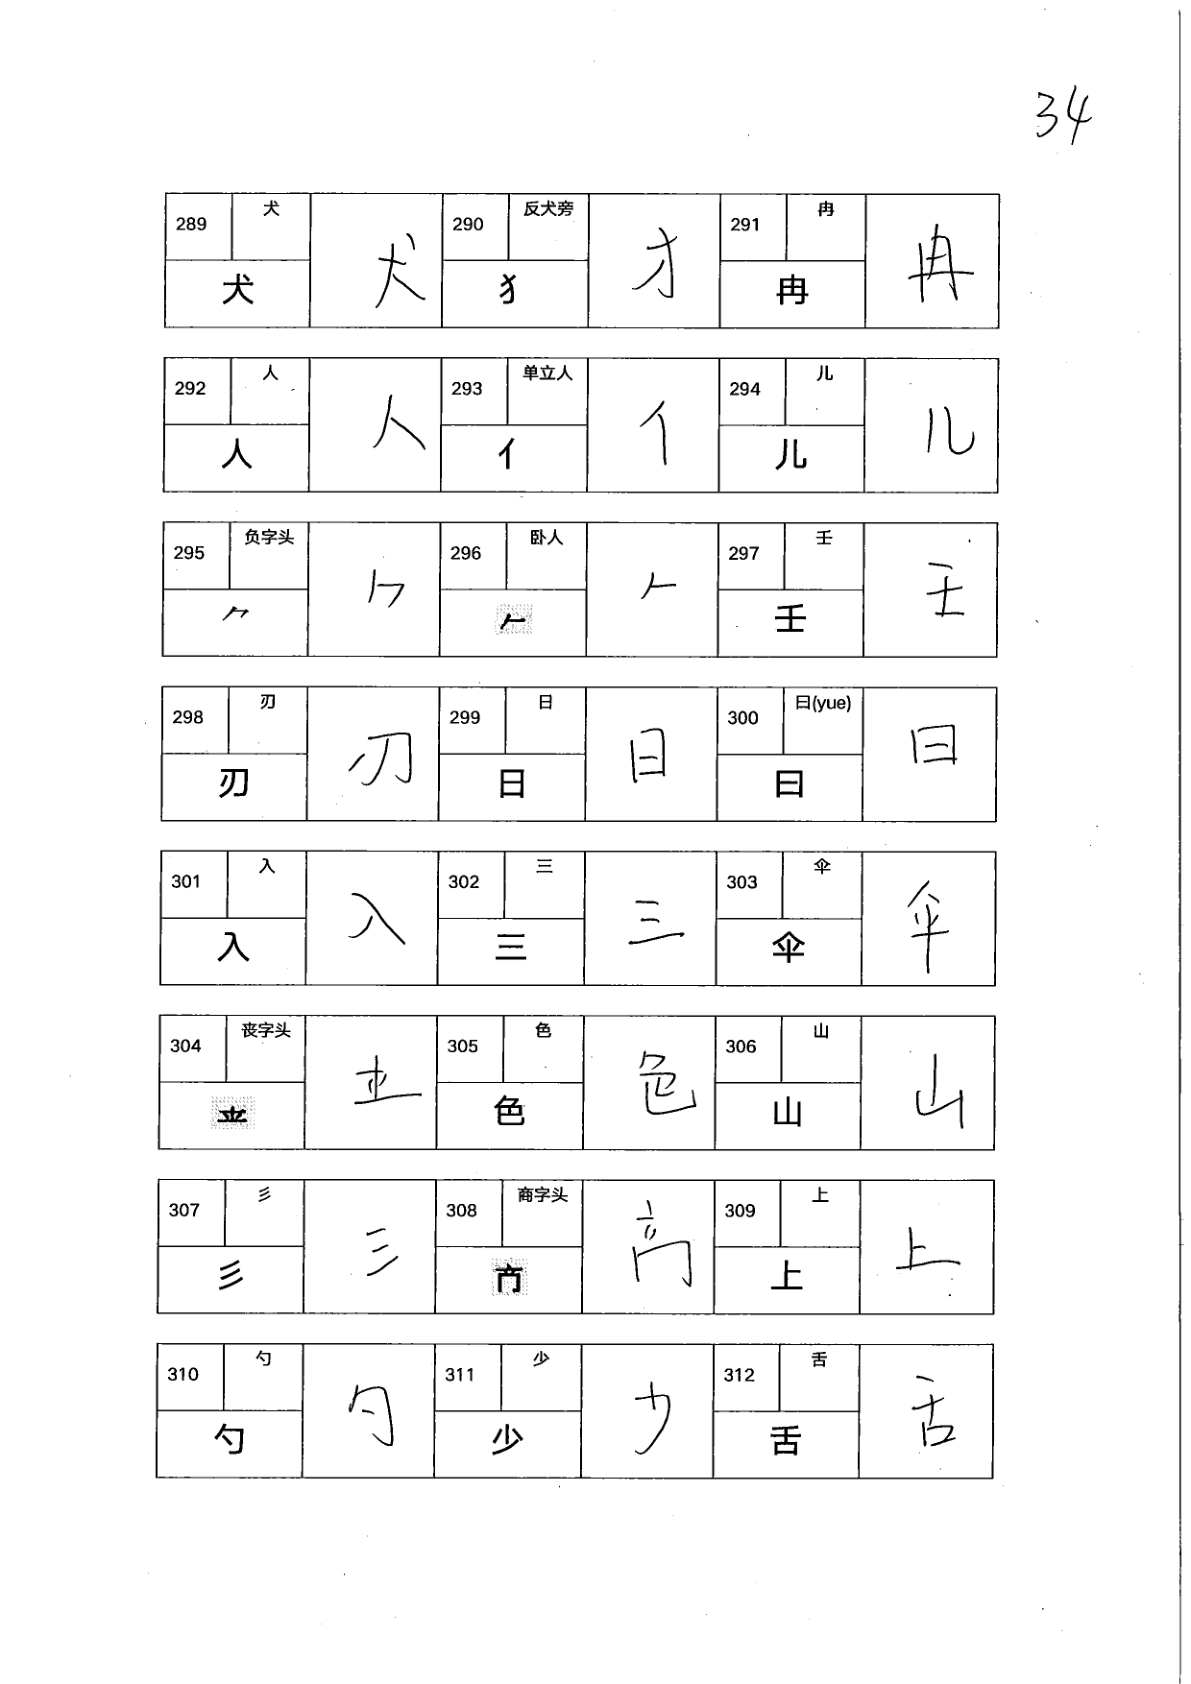 34
289 犬 犬 犬 290 反犬旁 犭 犭 291 冉 冉 冉
292 人 人 人 293 单立人 亻 亻 294 儿 儿 儿
295 负字头 ⺈ ⺈ 296 卧人 𠂉 𠂉 297 壬 壬 壬
298 刃 刃 刃 299 日 日 日 300 曰(yue) 曰 曰
301 入 入 入 302 三 三 三 303 伞 伞 伞
304 丧字头 305 色 色 色 306 山 山 山
307 彡 彡 彡 308 商字头 309 上 上 上
310 勺 勺 勺 311 少 少 少 312 舌 舌 舌